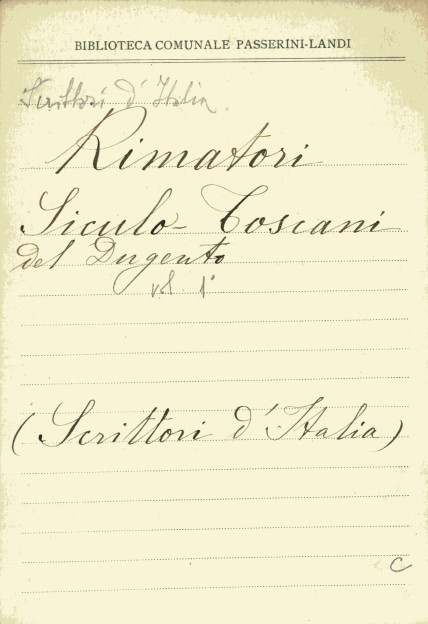 BIBLIOTECA COMUNALE PASSERINI-LANDI
Scrittori d'Italia
Rimatori
Siculo-Toscani
del Dugento
vol. 1°
(Scrittori d'Italia)
C